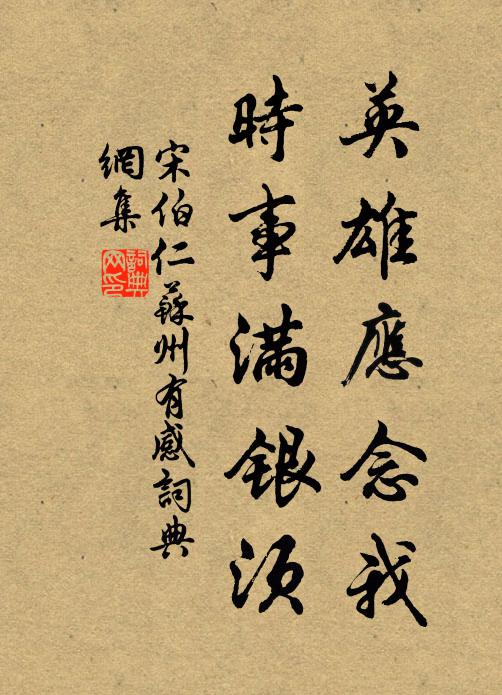 英雄應念我
時事滿銀須
宋伯仁蘇州有感詞典
網集
詞典
网印